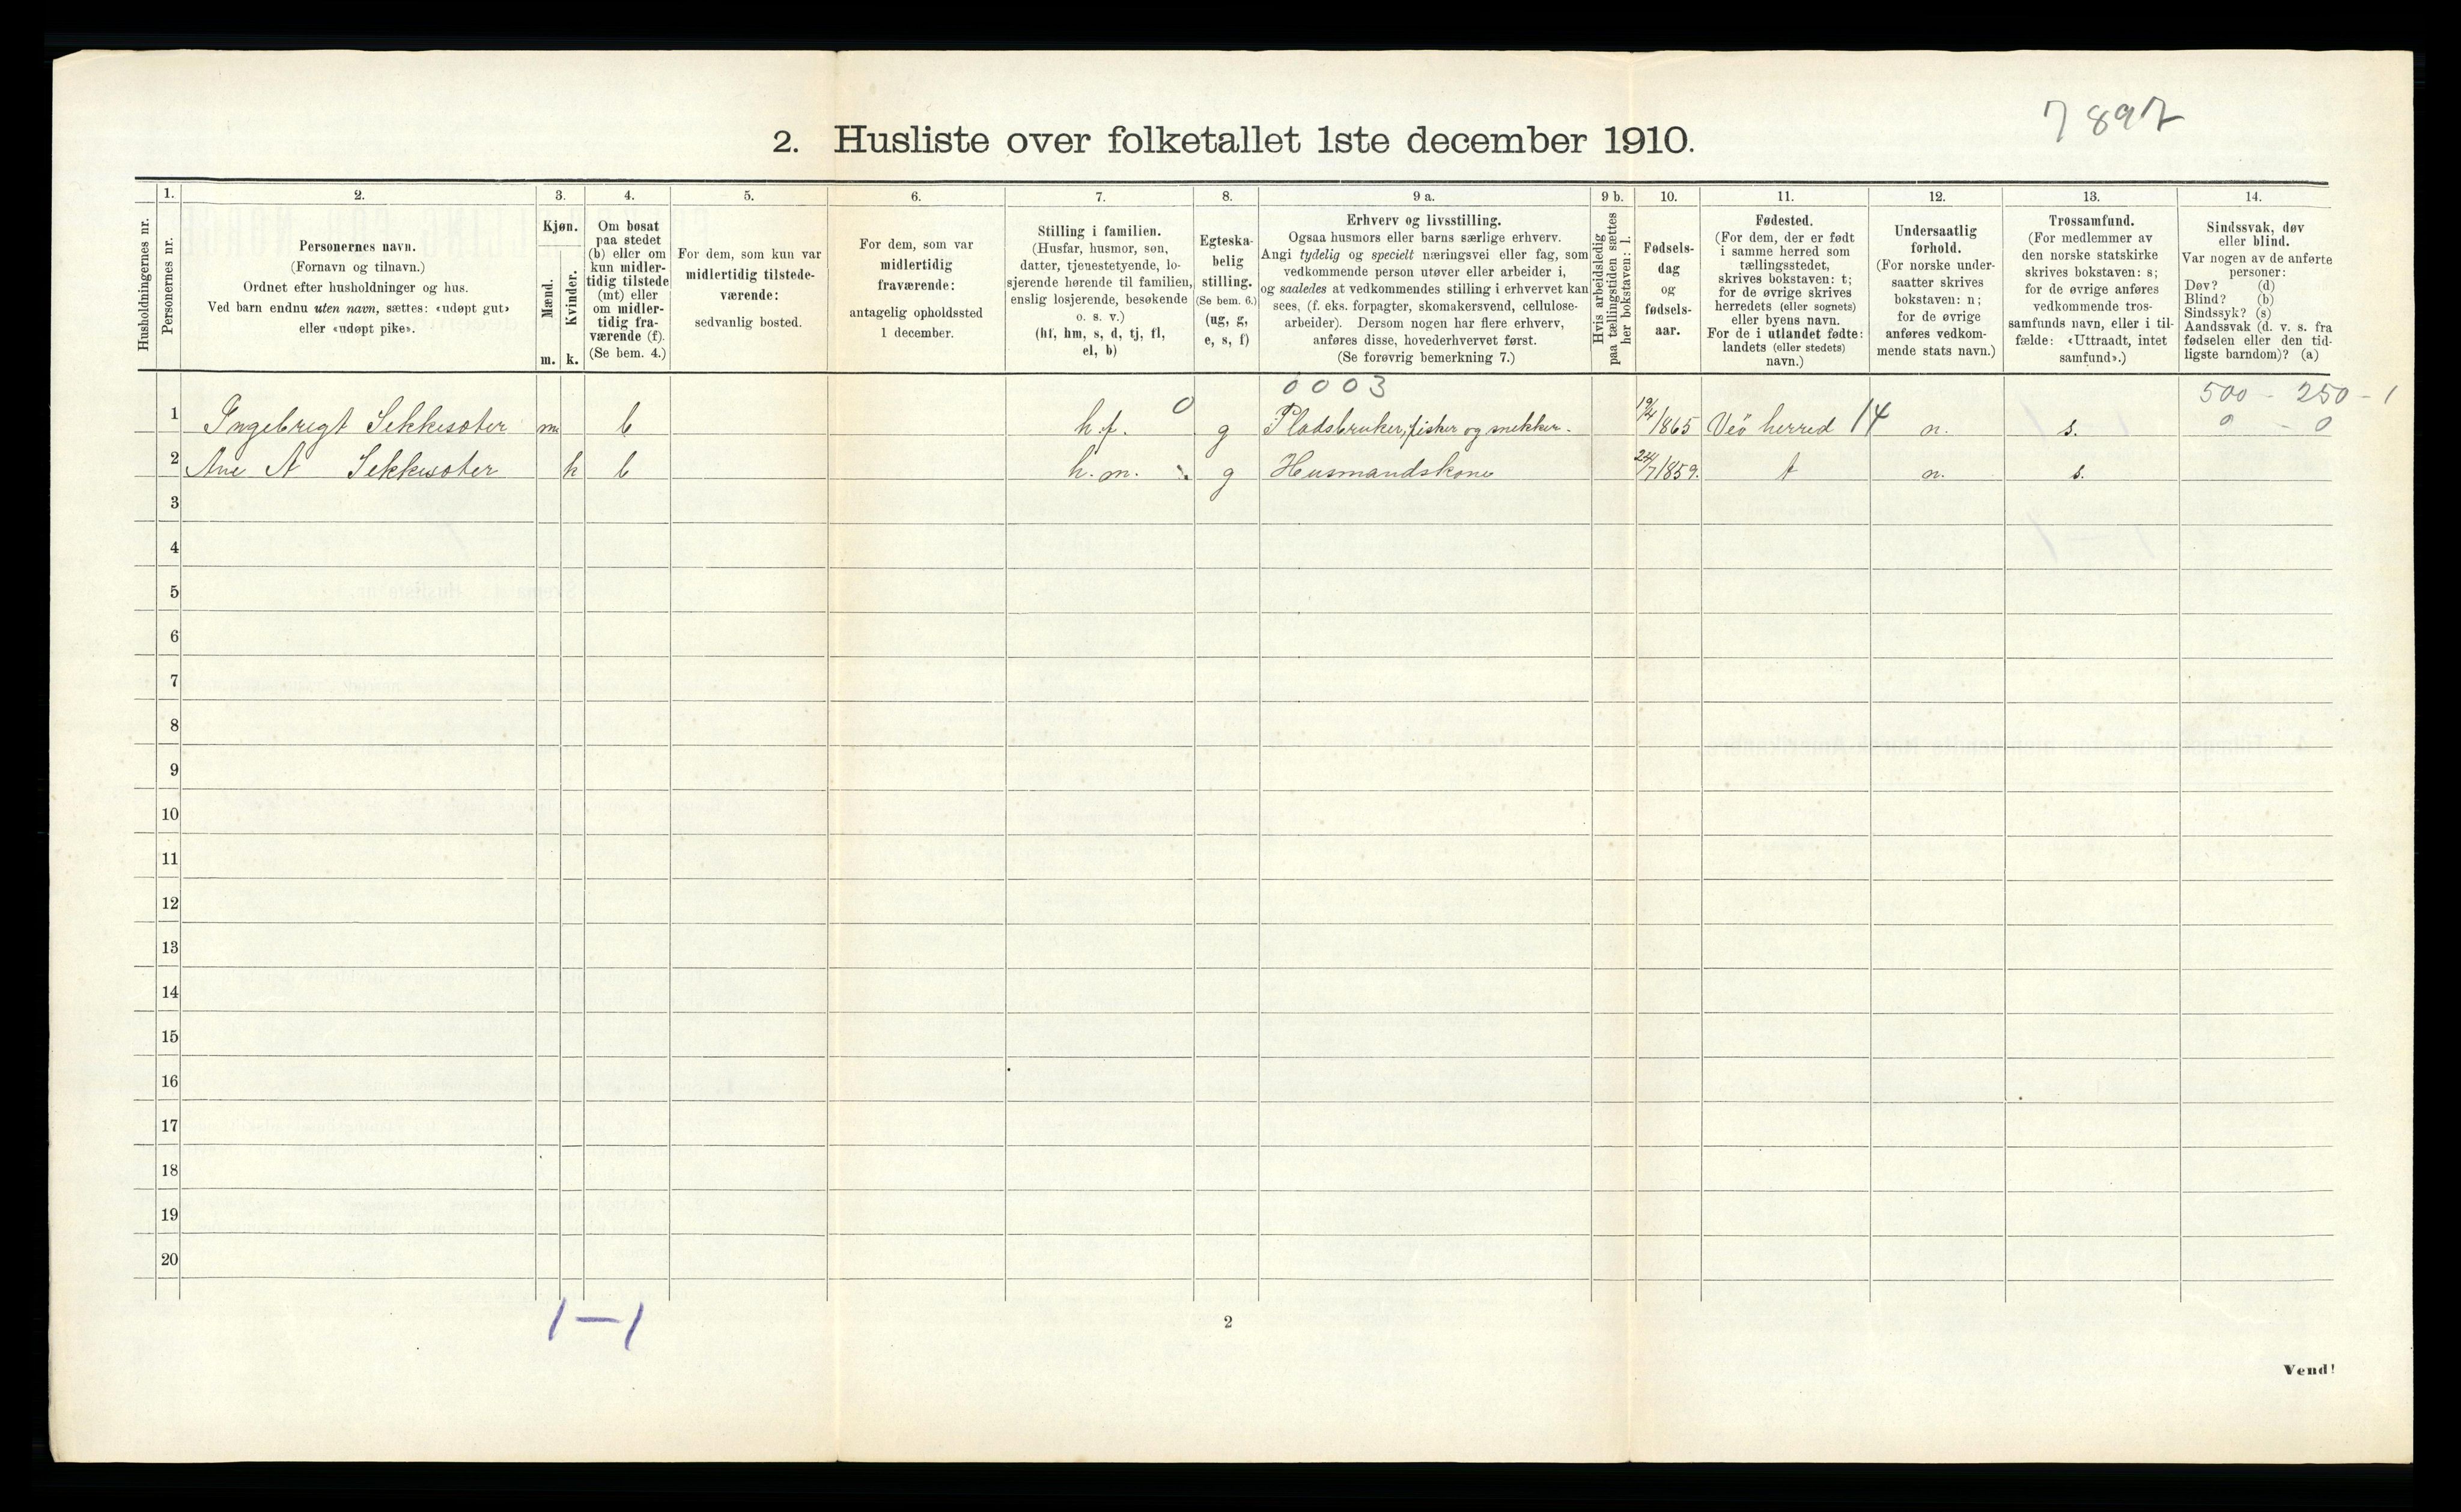 7892
2. Husliste over folketallet 1ste december 1910.
Husholdningernes nr.
1.
Personernes nr.
2.
Personernes navn.
(Fornavn og tilnavn.)
Ordnet efter husholdninger og hus.
Ved barn endnu uten navn, sættes: «udøpt gut»
eller «udøpt pike».
3.
Kjøn.
Mænd.
m.
Kvinder.
k.
4.
Om bosat
paa stedet
(b) eller om
kun midler-
tidig tilstede
(mt) eller
om midler-
tidig fra-
værende (f).
(Se bem. 4.)
5.
For dem, som kun var
midlertidig tilstede-
værende:
sedvanlig bosted.
6.
For dem, som var
midlertidig
fraværende:
antagelig opholdssted
1 december.
7.
Stilling i familien.
(Husfar, husmor, søn,
datter, tjenestetyende, lo-
sjerende hørende til familien,
enslig losjerende, besøkende
o. s. v.)
(hf, hm, s, d, tj, fl,
el, b)
8.
Egteska-
belig
stilling.
(Se bem. 6.)
(ug, g,
e, s, f)
9 a.
Erhverv og livsstilling.
Ogsaa husmors eller barns særlige erhverv.
Angi tydelig og specielt næringsvei eller fag, som
vedkommende person utøver eller arbeider i,
og saaledes at vedkommendes stilling i erhvervet kan
sees, (f. eks. forpagter, skomakersvend, cellulose-
arbeider). Dersom nogen har flere erhverv,
anføres disse, hovederhvervet først.
(Se forøvrig bemerkning 7.)
9 b.
Hvis arbeidsledig
paa tællingstiden sættes
her bokstaven: l.
10.
Fødsels-
dag
og
fødsels-
aar.
11.
Fødested.
(For dem, der er født
i samme herred som
tællingsstedet,
skrives bokstaven: t;
for de øvrige skrives
herredets (eller sognets)
eller byens navn.
For de i utlandet fødte:
landets (eller stedets)
navn.)
12.
Undersaatlig
forhold.
(For norske under-
saatter skrives
bokstaven: n;
for de øvrige
anføres vedkom-
mende stats navn.)
13.
Trossamfund.
(For medlemmer av
den norske statskirke
skrives bokstaven: s;
for de øvrige anføres
vedkommende tros-
samfunds navn, eller i til-
fælde: «Uttraadt, intet
samfund».)
14.
Sindssvak, døv
eller blind.
Var nogen av de anførte
personer:
Døv? (d)
Blind? (b)
Sindssyk? (s)
Aandssvak (d. v. s. fra
fødselen eller den tid-
ligste barndom)? (a)
0003
500 - 250 - 1
1 Ingebrigt Sekkesæter m b h.f. 0 g Pladsbruker, fisker og snekker. 19/4 1865 Veö herred 14 n. s. 0 - 0
2 Ane A Sekkesæter k b h.m. g Husmandskone 24/7 1859. t n. s.
3
4
5
6
7
8
9
10
11
12
13
14
15
16
17
18
19
20
1—1
2
Vend!